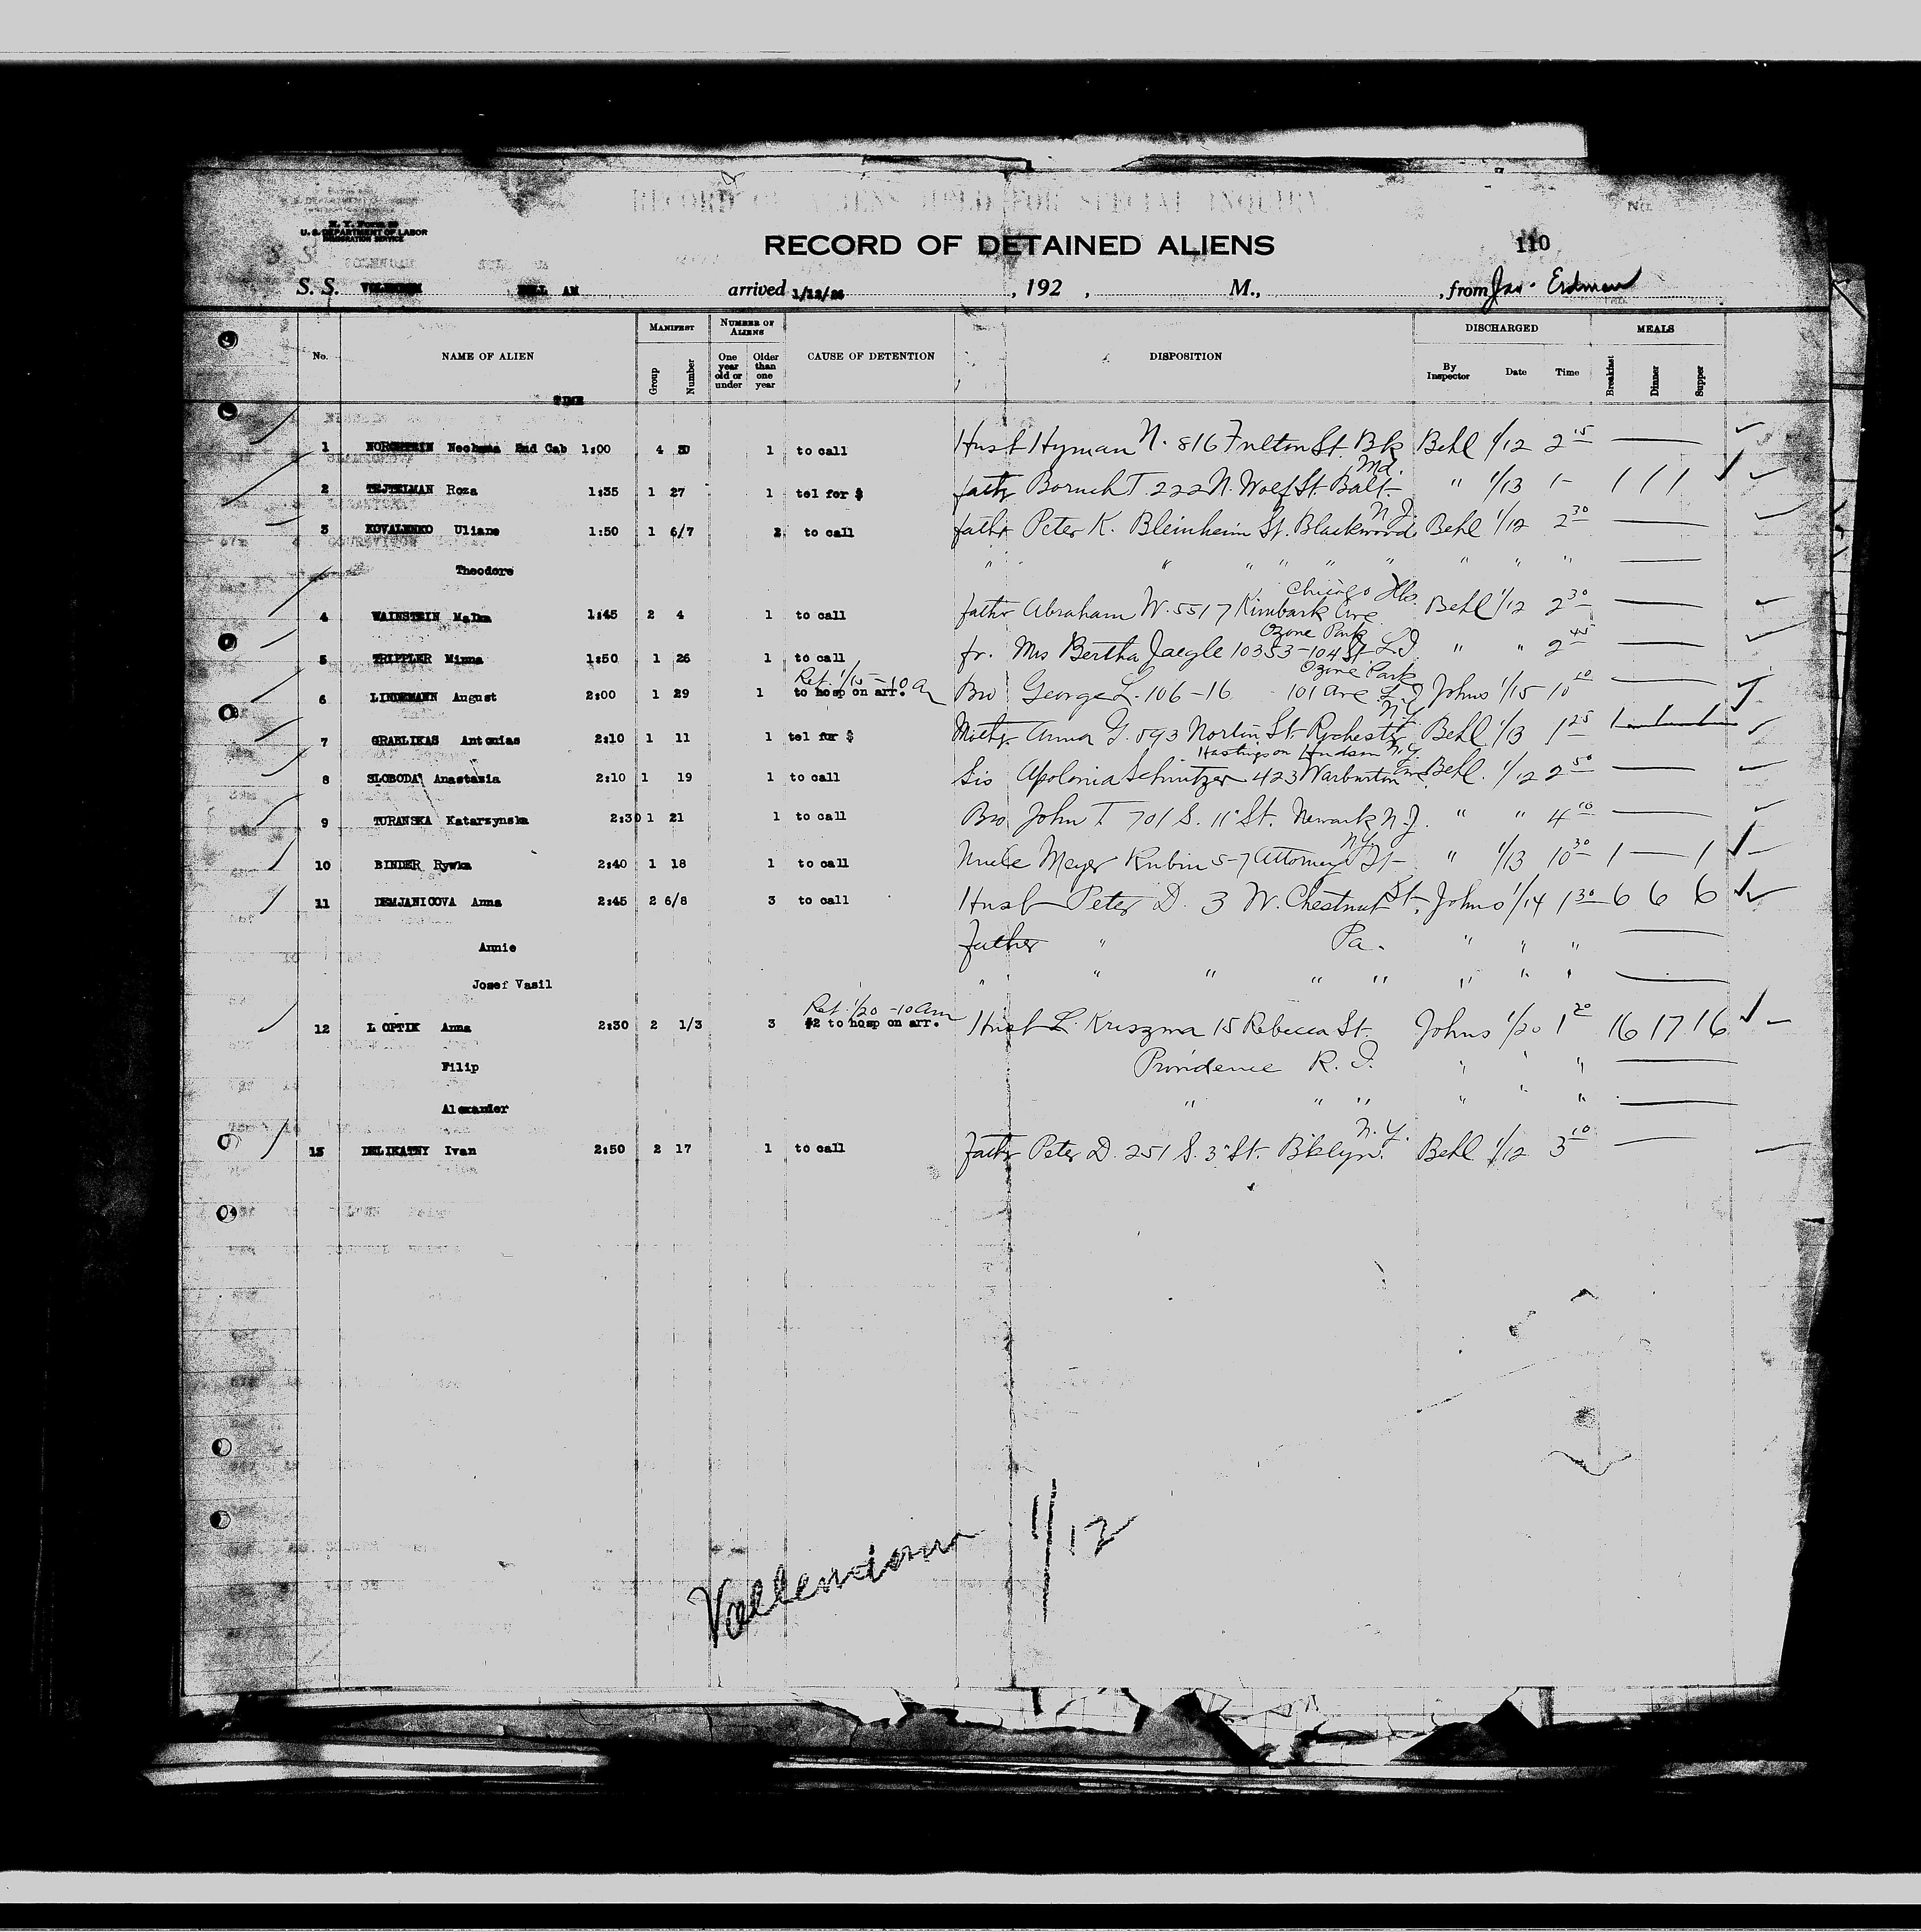 RECORD OF ALIENS HELD FOR SPECIAL INQUIRY
U. S. DEPARTMENT OF LABOR
IMMIGRATION SERVICE
RECORD OF DETAINED ALIENS 110
S. S. VOLENDAM AM arrived 1/12/26, 192 , M., from Jas. Erdman
No. NAME OF ALIEN MANIFEST Group Number NUMBER OF ALIENS One year old or under Older than one year CAUSE OF DETENTION DISPOSITION DISCHARGED By Inspector Date Time MEALS Breakfast Dinner Supper
TIME
1 NORGSTEIN Nechama 2nd Cab 1:00 4 1 to call Husb Hyman N. 816 Fulton St. Bk Behl 1/12 2 15
2 TEJTELMAN Roza 1:35 1 27 1 tel for $ fathr Boruch T. 222 N. Wolf St. Balt. Md. " 1/13 1- 1 1 1
3 KOVALENKO Uliane 1:50 1 6/7 2 to call fathr Peter K. Bleinheim St. Blackwood N J. Behl 1/12 2 30
Theodore " " " " " " " " "
4 WAINSTEIN Malka 1:45 2 4 1 to call fathr Abraham W. 5517 Kimbark Ave Chicago Ills Behl 1/12 2 30
5 TRIPPLER Minna 1:50 1 26 1 to call fr. Mrs Bertha Jaegle 10353-104 St Ozone Park L I " " 2 45
6 LINDEMANN August 2:00 1 29 1 to hosp on arr. Ret. 1/15-10 am Bro George L. 106-16 101 Ave Ozone Park L I Johns 1/15 10 20
7 GRABLIKAS Antonias 2:10 1 11 1 tel for $ Mother Anna G. 593 Nortin St. Rochester N.Y. Behl 1/13 1 25 1 1 1
8 SLOBODA Anastazia 2:10 1 19 1 to call Sis Apolonia Schnitzer 423 Warburton Ave Hastings on Hudson N.Y. Behl. 1/12 2 50
9 TURANSKA Katarzynska 2:30 1 21 1 to call Bro John T. 701 S. 11" St. Newark N.J. " " 4 10
10 BINDER Rywka 2:40 1 18 1 to call Uncle Meyer Rubin 57 Attorney St N.Y. " 1/13 10 30 1 — 1
11 DEMJANICOVA Anna 2:45 2 6/8 3 to call Husb Peter D. 3 W. Chestnut St. Johns 1/14 1 30 6 6 6
Annie Father " Pa. " " "
Josef Vasil " " " " " " " "
12 LOPTIK Anna 2:30 2 1/3 3 #2 to hosp on arr. Ret. 1/20-10 am Husb L. Kriszma 15 Rebecca St. Johns 1/20 1 20 16 17 16
Filip Providence R. I. " " "
Alexander " " " " " "
13 DELIKATNY Ivan 2:50 2 17 1 to call Fathr Peter D. 251 S. 3" St. Bklyn. N.Y. Behl 1/12 3 10
Vollendam 1/12